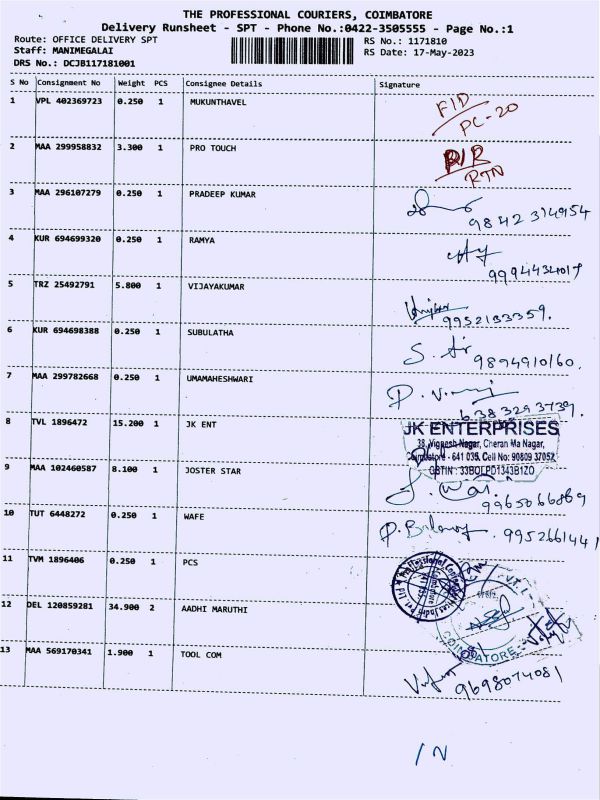 THE PROFESSIONAL COURIERS, COIMBATORE
Delivery Runsheet - SPT - Phone No.:0422-3505555 - Page No.:1
Route: OFFICE DELIVERY SPT RS No.: 1171810
Staff: MANIMEGALAI RS Date: 17-May-2023
DRS No.: DCJB117181001
S No Consignment No Weight PCS Consignee Details Signature
1 VPL 402369723 0.250 1 MUKUNTHAVEL FID
PC-20
2 MAA 299958832 3.300 1 PRO TOUCH
RTN
3 MAA 296107279 0.250 1 PRADEEP KUMAR
98423 14954
4 KUR 694699320 0.250 1 RAMYA
9994434019
5 TRZ 25492791 5.800 1 VIJAYAKUMAR
9952133359.
6 KUR 694698388 0.250 1 SUBULATHA
9894910160.
7 MAA 299782668 0.250 1 UMAMAHESHWARI
6383293739.
8 TVL 1896472 15.200 1 JK ENT JK ENTERPRISES
38, Vignesh Nagar, Cheran Ma Nagar,
Coimbatore - 641 035. Cell No: 90809 37052
GSTIN : 33BOLPD1343B1ZO
9 MAA 102460587 8.100 1 JOSTER STAR
9965066869
10 TUT 6448272 0.250 1 WAFE 9952661441
11 TVM 1896406 0.250 1 PCS
12 DEL 120859281 34.900 2 AADHI MARUTHI
COIMBATORE
13 MAA 569170341 1.900 1 TOOL COM
9698074081
/ N